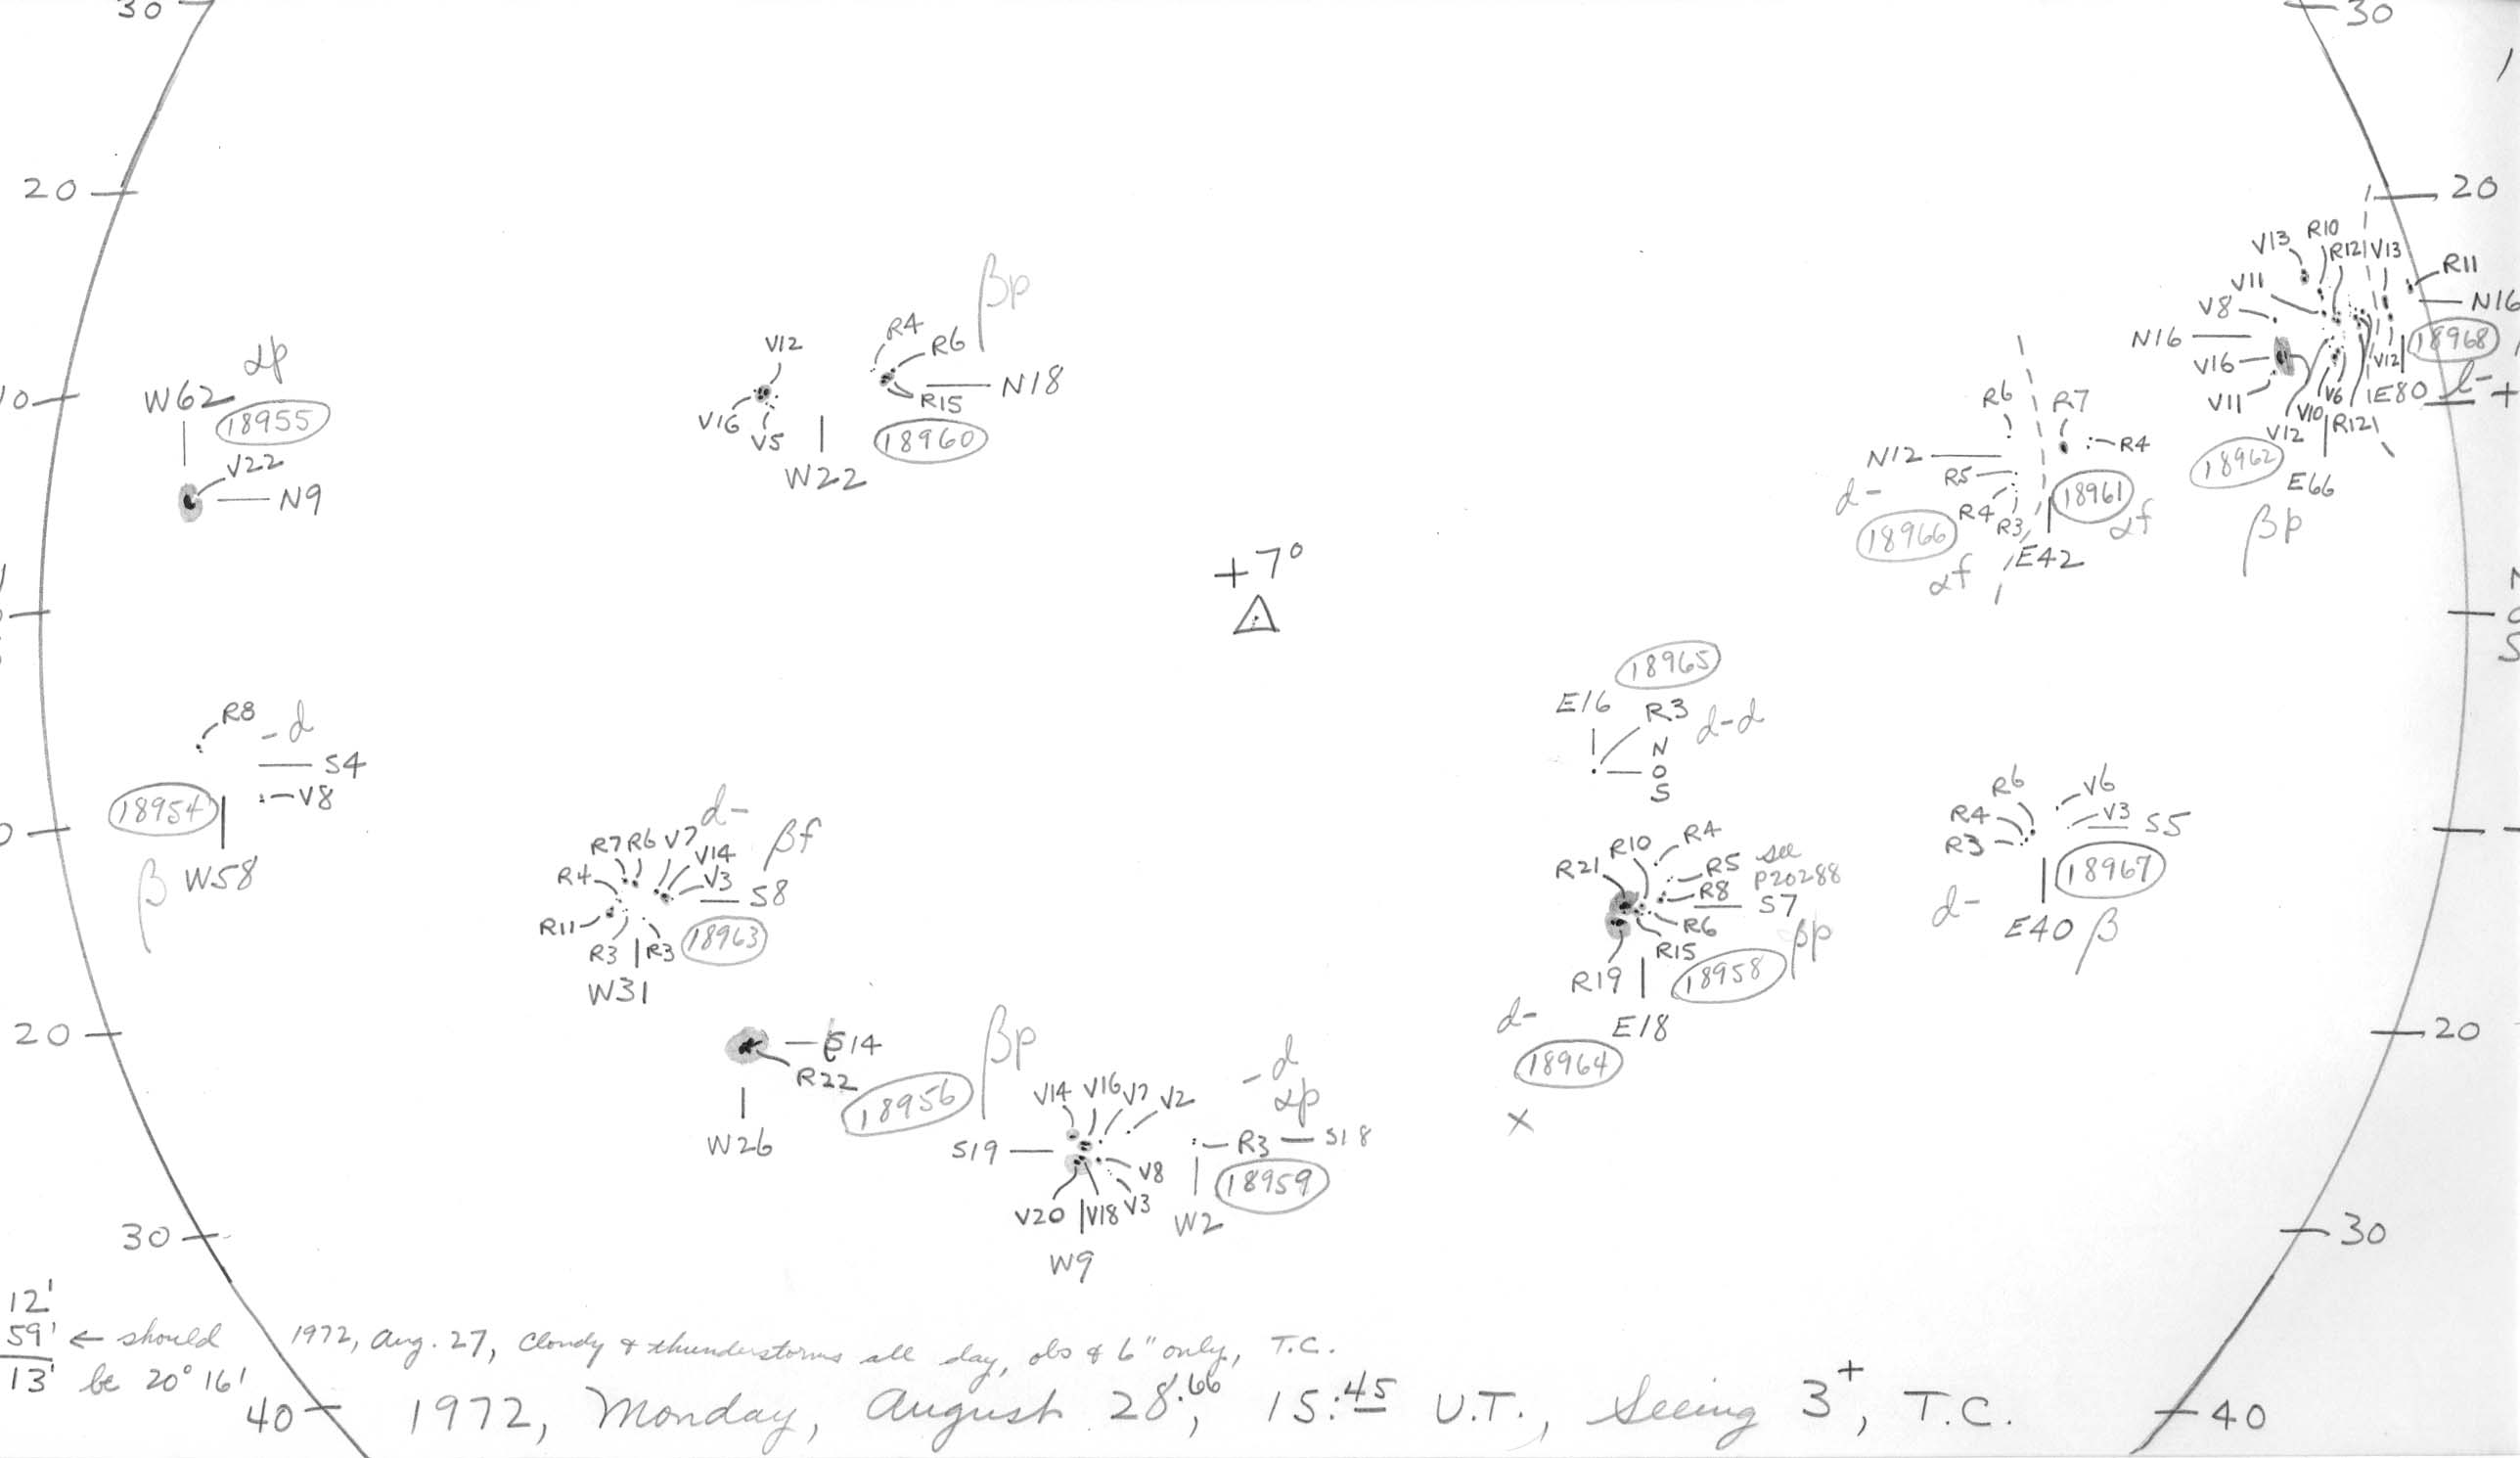 30
30
20
20
V13 R10
R12 V13
R11
V11
N16
V8
N16
18968
V16
V12
V11
V6
E80 l-
+
V10
V12 R12
18962
E66
βp
βp
R4
R6
V12
N18
R15
V16
V5
18960
W22
αp
W62
10
18955
V22
N9
R6 R7
R4
N12
R5
d-
18961
R4 R3
αf
18966
E42
αf
+7°
18965
E16 R3 d-d
N
0
S
R8 -d
S4
V8
18954
W58
β
d-
R7 R6 V7
βf
V14
R4
V3
S8
R11
18963
R3 R3
W31
R10 R4
R21
R5 see
P20288
R8
S7
R6
βp
R15
R19
18958
E18
d-
18964
X
R6 V6
R4
V3 S5
R3
18967
d-
E40 β
20
20
S14
R22
18956
βp
W26
-d
αp
V14 V16 V7 V2
S19
R3 S18
V8
18959
V20 V18 V3
W2
W9
30
30
12'
59' ← should
13' be 20° 16'
1972, Aug. 27, Cloudy & thunderstorms all day, obs & 6" only, T.C.
40
1972, Monday, August 28.66, 15:45 U.T., Seeing 3+, T.C.
40